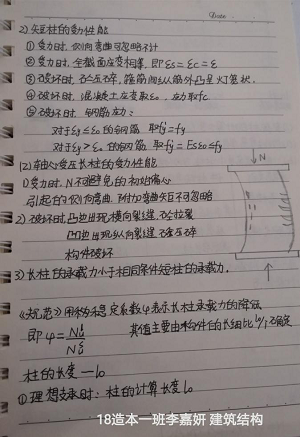 Date
2) 矩柱的受力性能
① 受力时,侧向弯曲可忽略不计
② 受力时,全截面应变相等,即εs=εc=ε
③ 破坏时,砼压碎,箍筋间纵筋外凸呈灯笼状.
④ 破坏时,混凝土应变取ε₀,应力取fc
⑤ 破坏时,钢筋应力:
对于εy≤ε₀的钢筋 取fy'=fy
对于εy>ε₀的钢筋 取fy'=Esε₀≤fy
(2) 轴心受压长柱的受力性能
① 受力时,N不避免的初始偏心
引起的侧向弯曲,附加弯矩不可忽略
2) 破坏时凸边出现横向裂缝,砼拉裂
凹边出现纵向裂缝 砼压碎
构件破坏
N
3) 长柱的承载力小于相同条件短柱的承载力.
《规范》用稳定系数φ表示长柱承载力的降低
即 φ= Nᵤˡ/Nᵤˢ 其值主要由构件的长细比l₀/i确定
柱的长度—l₀
① 理想支承时:柱的计算长度l₀
18造本一班李嘉妍 建筑结构